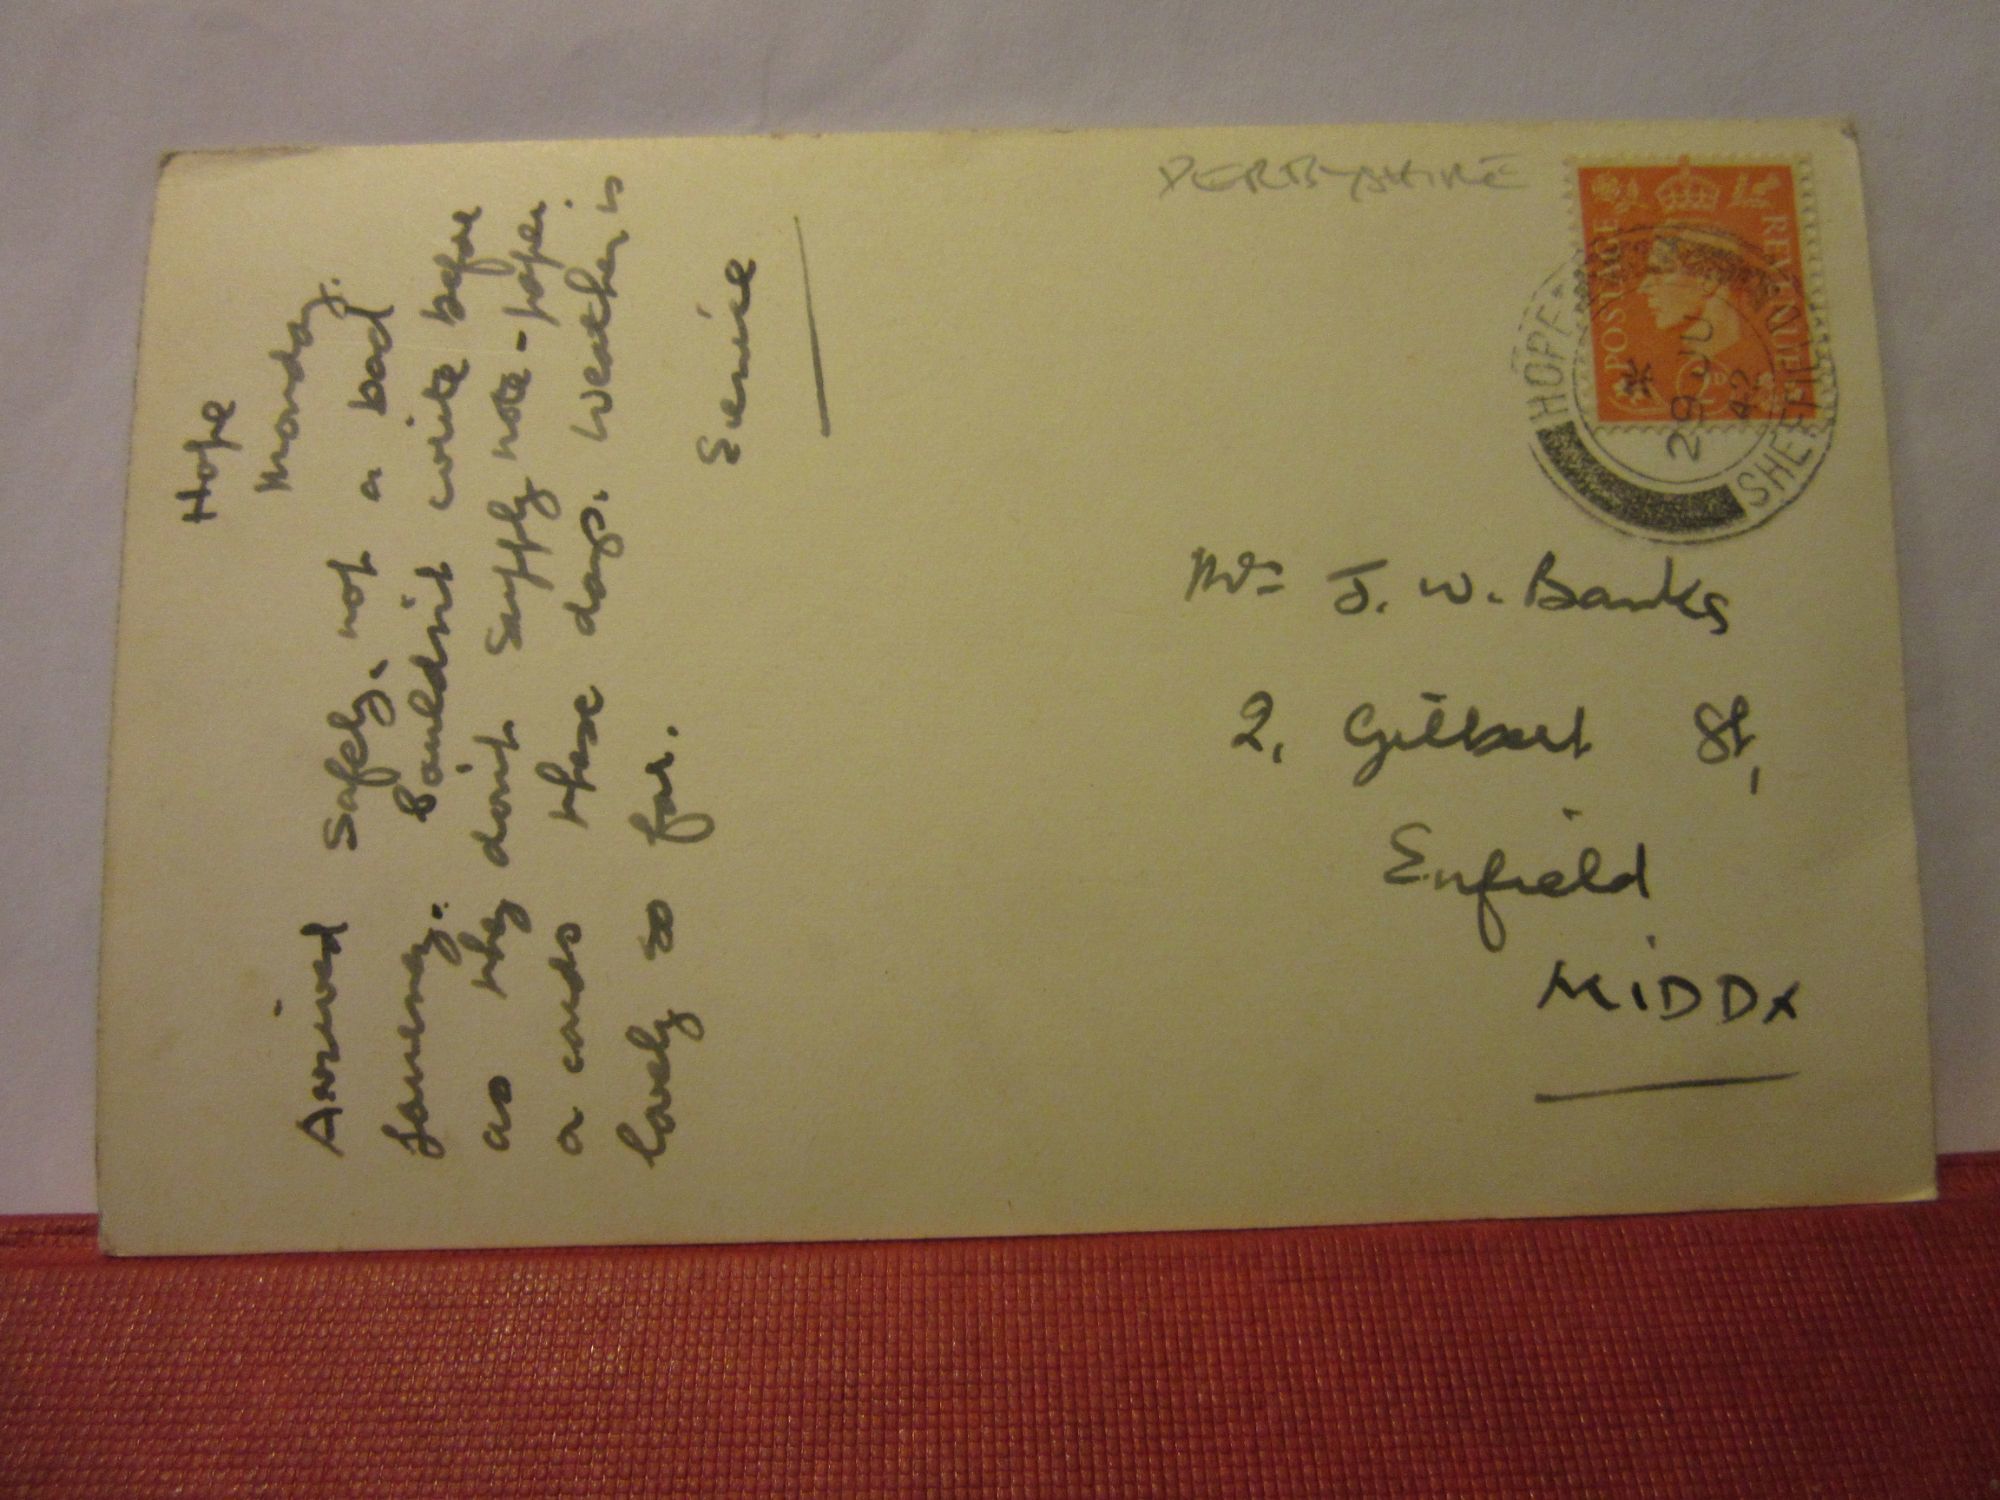 Hope
Monday.
Arrived safely, not a bad
journey. Couldn't write before
as they don't supply note-paper
& cards these days. Weather is
lovely so far.
Eernie
DERBYSHIRE
POSTAGE REVENUE
HOPE
29 JU
42
SHEFFIELD
J. W. Banks
2, Gilbert St,
Enfield
MIDDX